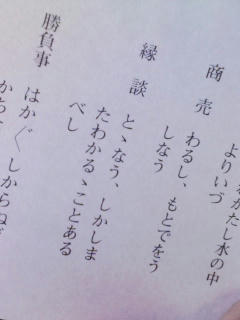 がたし水の中
よりいづ
商売 わるし、もとでをう
しなう
縁談 とゝなう、しかしま
たわかるゝことある
べし
勝負事 はか〴〵しからねど
かち